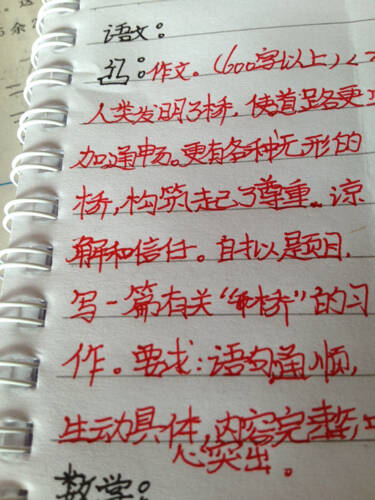 语文:
作文。(600字以上)<
人类发明了桥,使道路更
加通畅。更有各种无形的
桥,构筑起了尊重、谅
解和信任。自拟题目,
写一篇有关“桥”的习
作。要求:语句通顺,
生动具体,内容完整,
心突出。
数学: